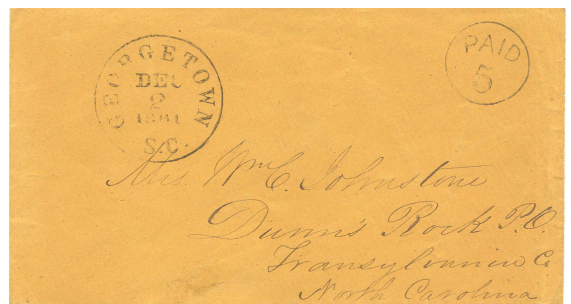 GEORGETOWN
DEC
2
1861
S.C.
PAID
5
Mrs. Wm. C. Johnstone
Dunn's Rock P.O.
Transylvania Co.
North Carolina